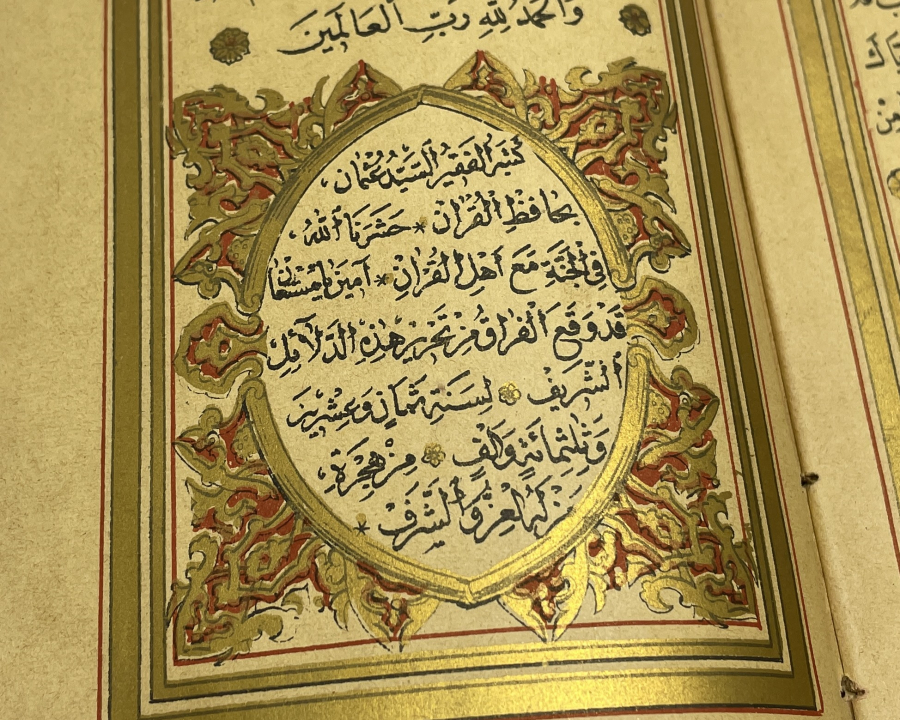 والحمد لله رب العالمين
كتبه الفقير السيد عثمان
بحافظ القرآن * حشرنا الله
في الجنة مع أهل القرآن * آمين يا مستعان
قد وقع الفراق من تحرير هذه الدلائل
الشريف لسنة ثمان وعشرين
وثلثمائة وألف من هجرة
من له العز والشرف *